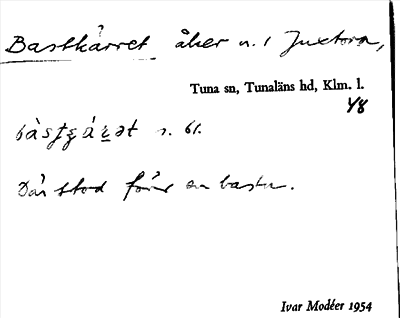 Bastkärret åker n. 1 Juxtorp,
Tuna sn, Tunaläns hd, Klm. l.
48
s. 61.
Där stod förr en bastu.
Ivar Modéer 1954